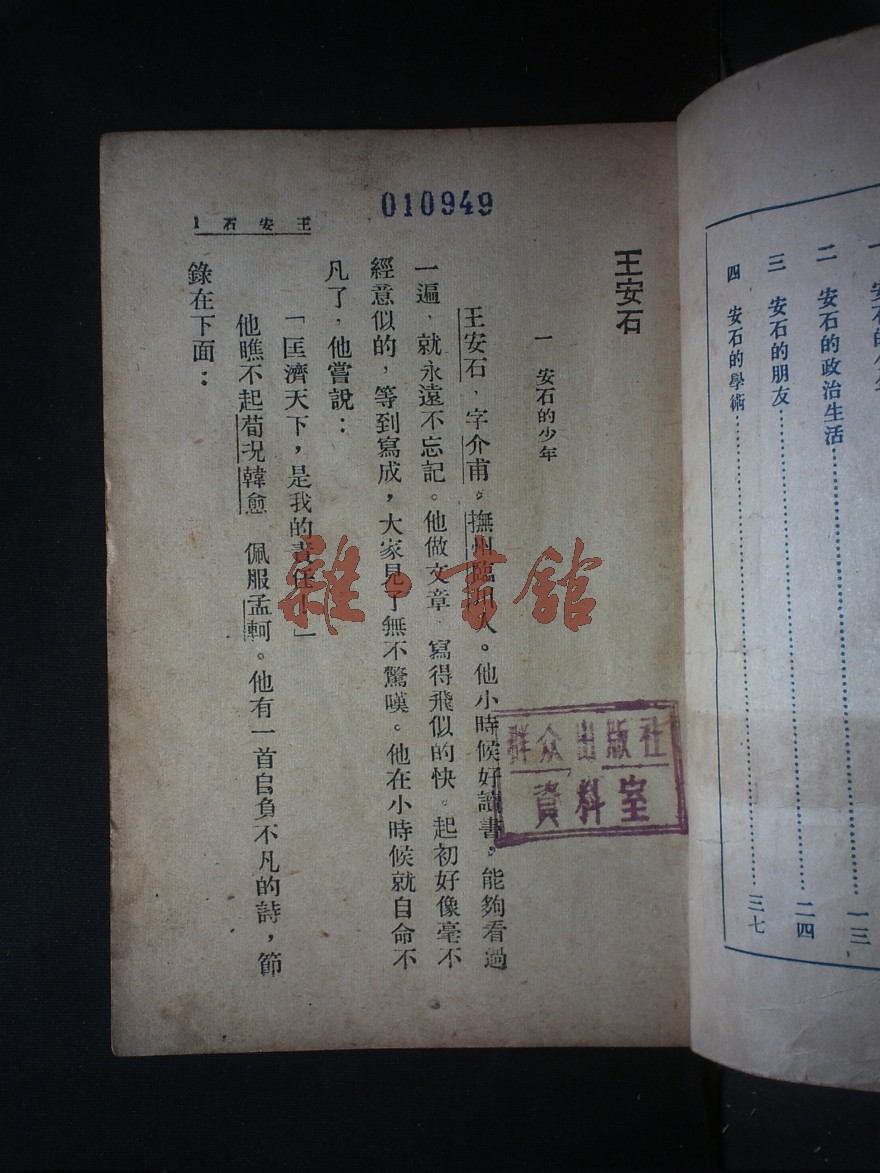 一 安石的少年
二 安石的政治生活……一三
三 安石的朋友……二四
四 安石的學術……三七
010949
王安石 1
王安石
一 安石的少年
王安石，字介甫。撫州臨川人。他小時候好讀書，能夠看過
一遍，就永遠不忘記。他做文章 寫得飛似的快。起初好像毫不
經意似的，等到寫成，大家見了無不驚嘆。他在小時候就自命不
凡了，他嘗說：
「匡濟天下，是我的責任！」
他瞧不起荀況韓愈 佩服孟軻。他有一首自負不凡的詩，節
錄在下面：
群众出版社
資料室
雜·書館